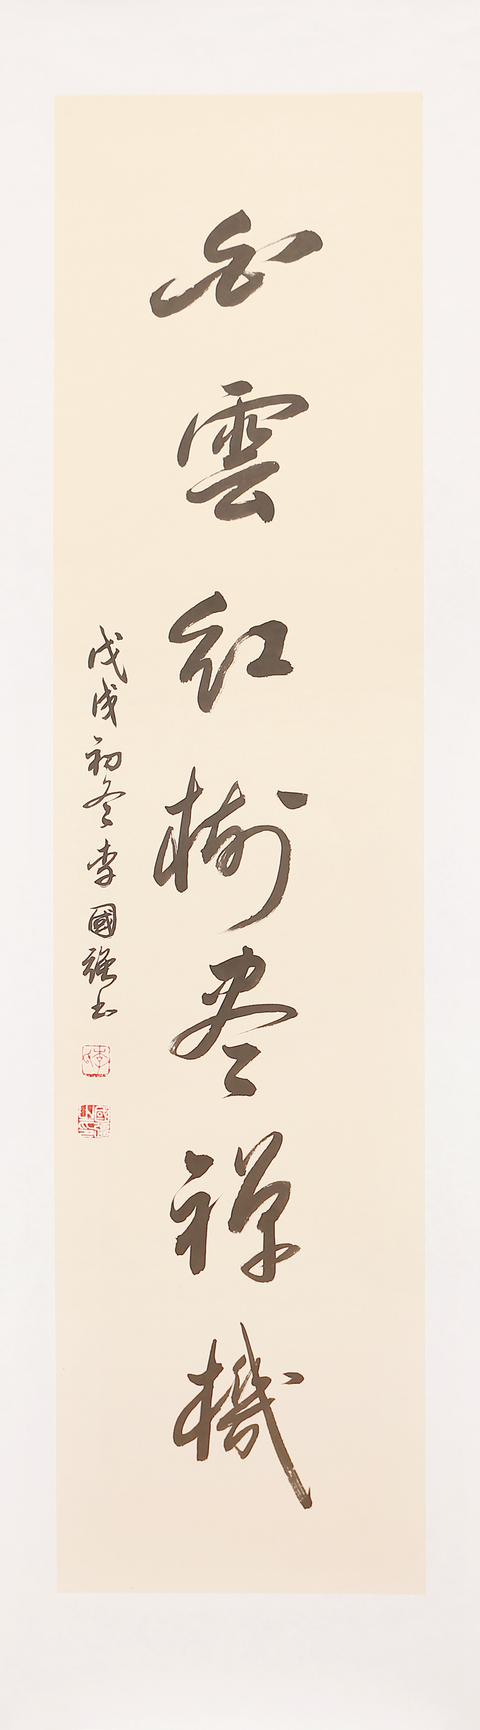 白雲紅樹尽禪機
戊戌初冬李國強书